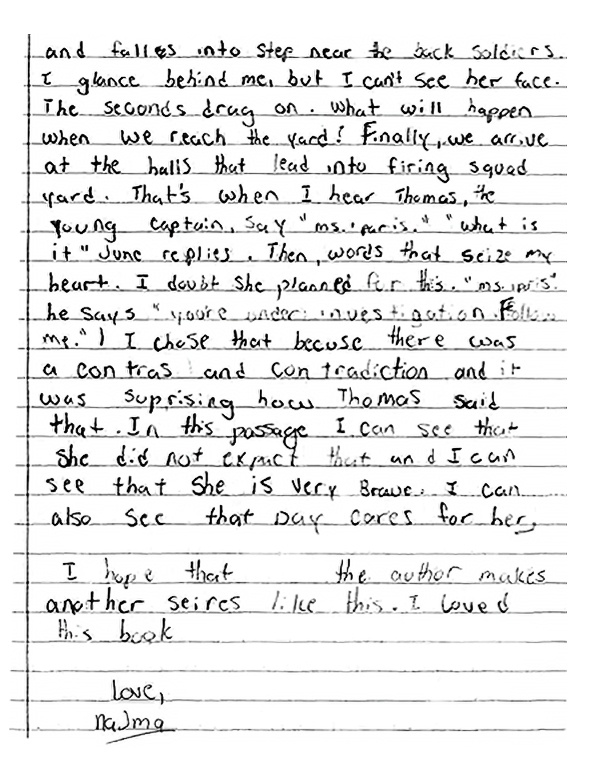 and falles into step near the back soldiers.
I glance behind me, but I can't see her face.
The seconds drag on. What will happen
when we reach the yard! Finally, we arrive
at the halls that lead into firing squad
yard. That's when I hear Thomas, the
young captain, say "ms. iparis." "what is
it" June replies. Then, words that seize my
heart. I doubt she planned for this. "ms. iparis"
he says "you're under investigation. Follow
me.") I chose that becuse there was
a contras and contradiction and it
was suprising how Thomas said
that. In this passage I can see that
she did not expact that and I can
see that she is very Brave. I can
also see that Day cares for her,
I hope that the author makes
another seires like this. I loved
this book
Love,
Najma